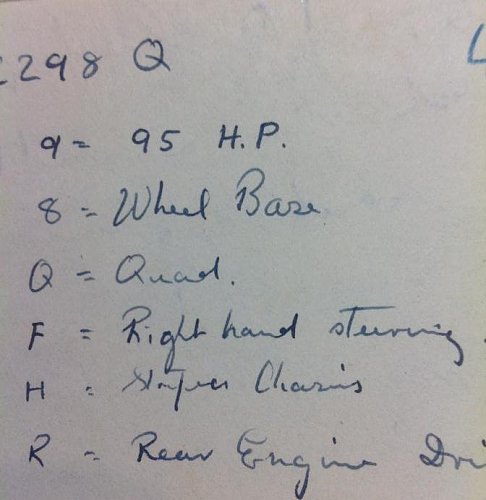 2298 Q
9 = 95 H.P.
8 = Wheel Base
Q = Quad.
F = Right hand steering.
H = Chassis
R = Rear Engine Dri